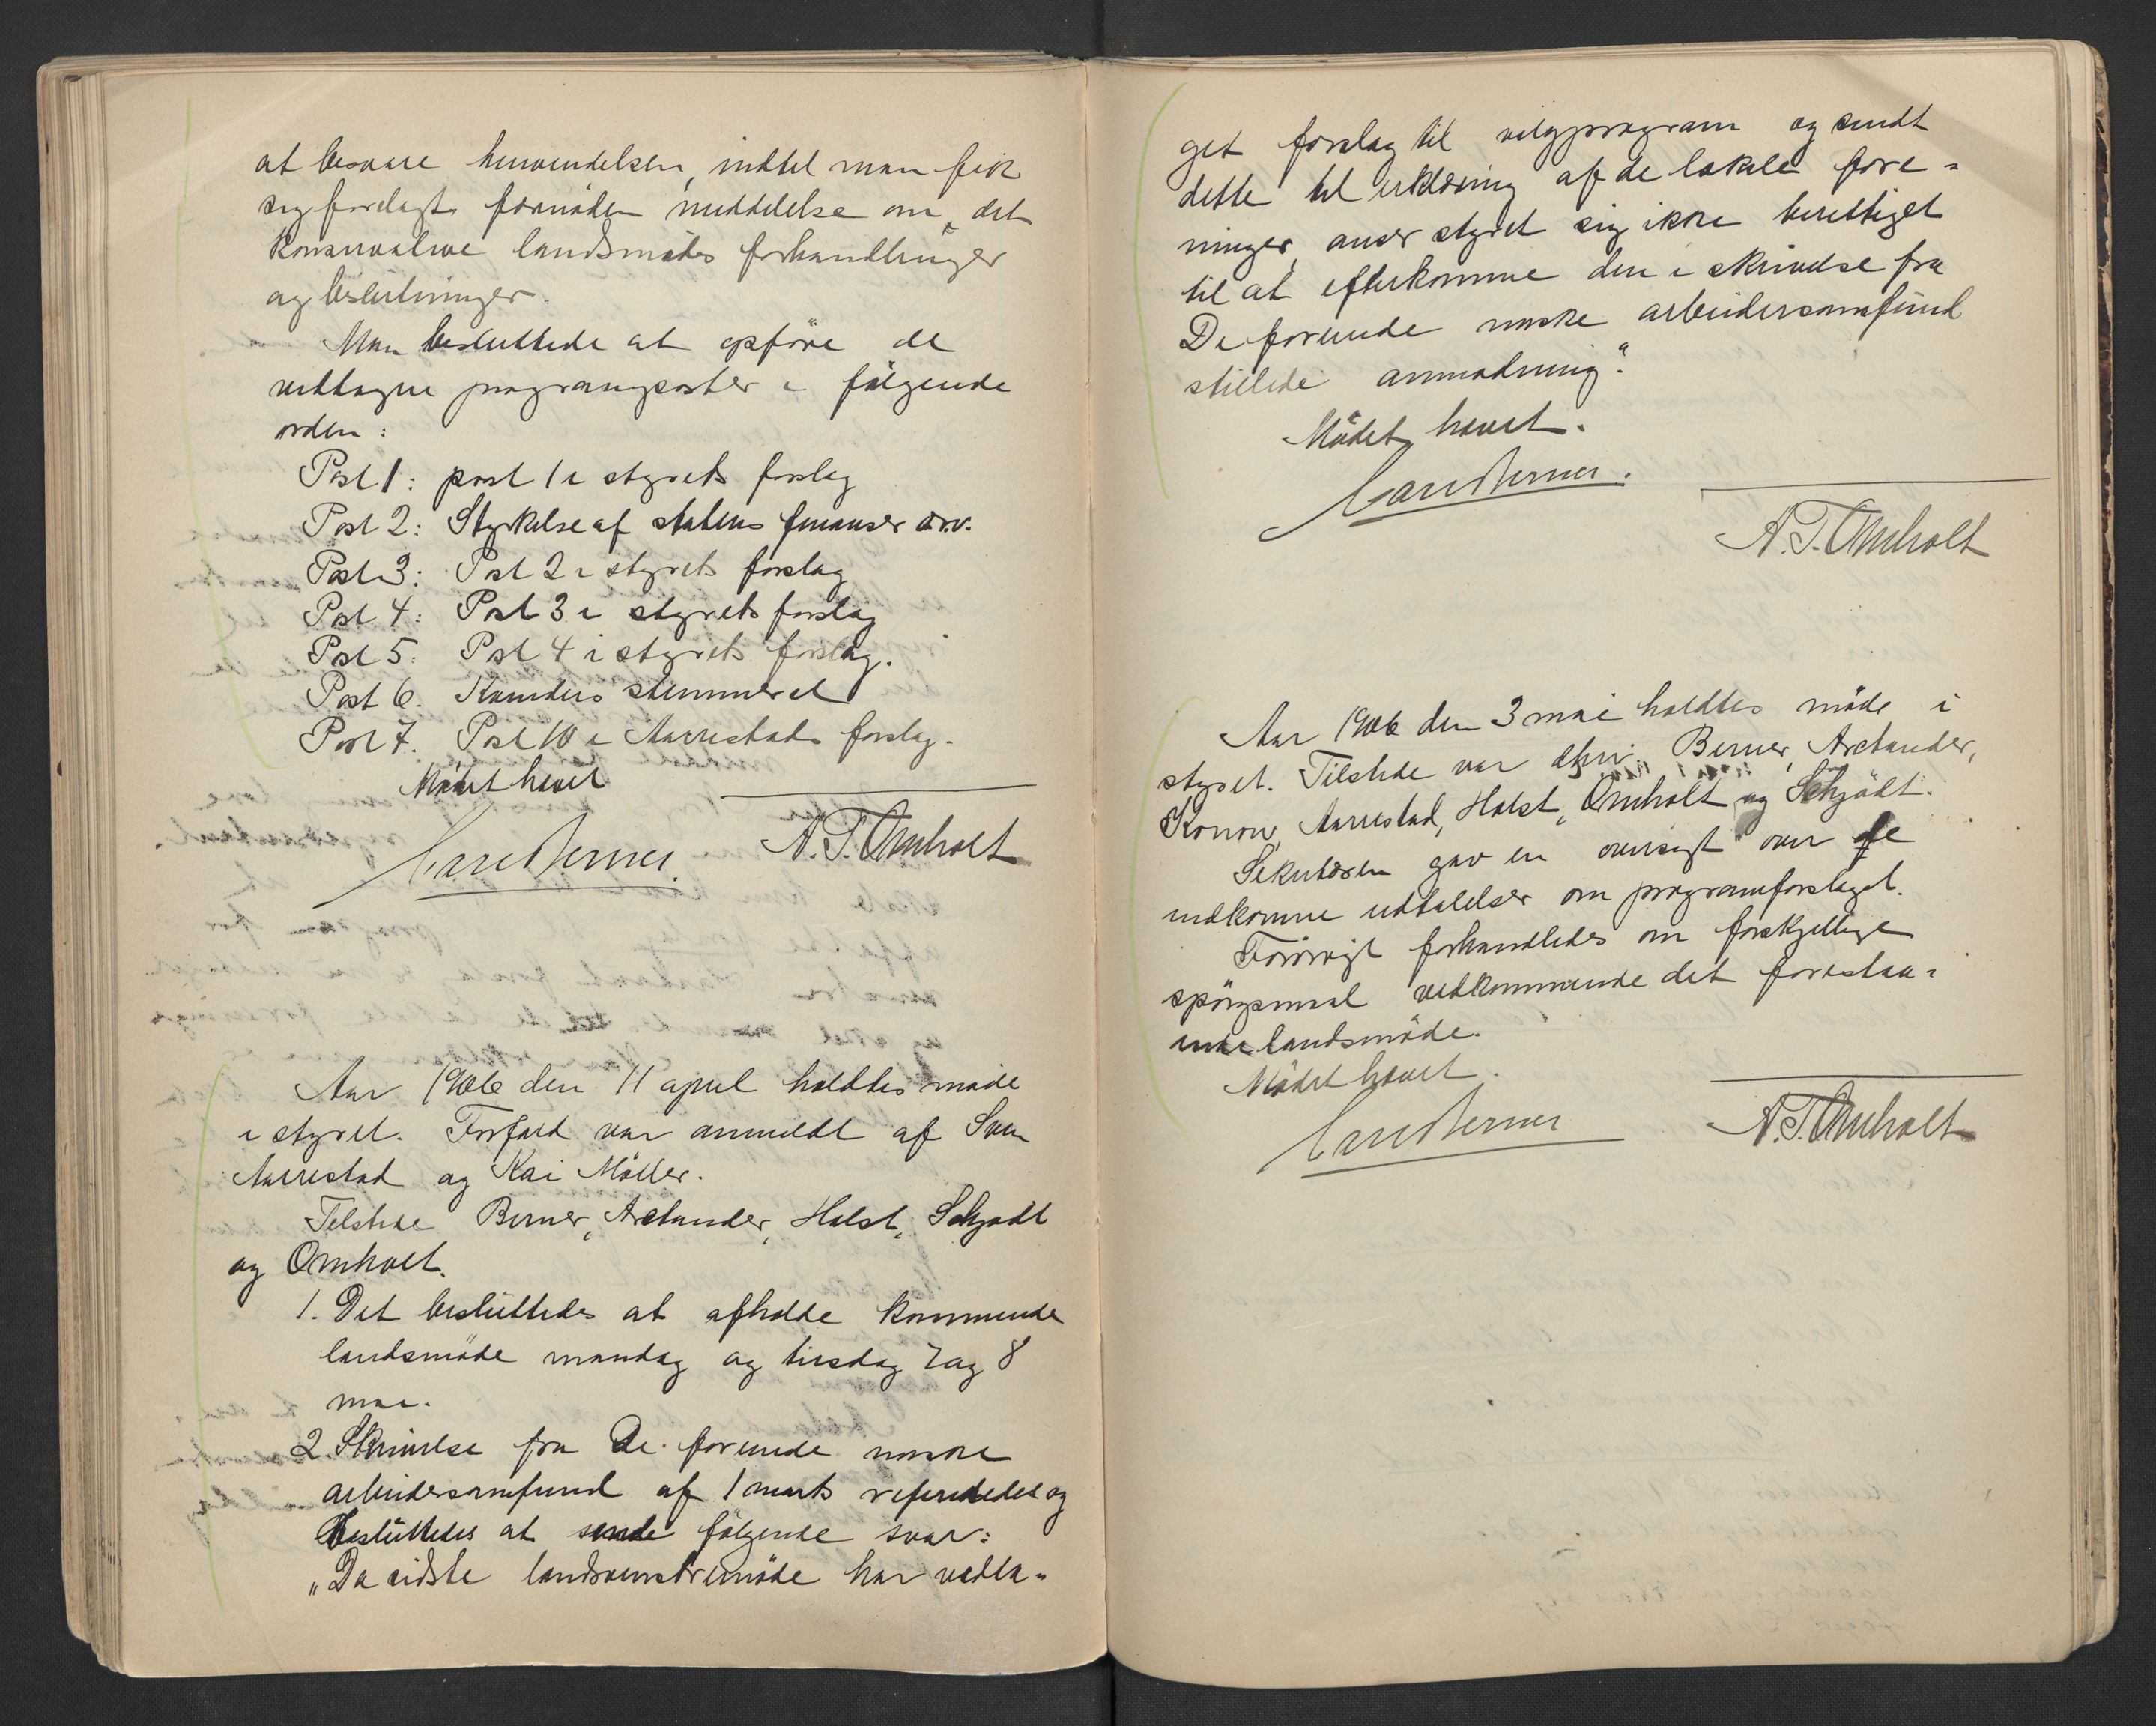 at besvare henvendelsen, indtil man fik
sig forelagt fornöden meddelelse om det
konservative landsmödes forhandlinger
og beslutninger.
Man besluttede at opföre de
vedtagne programposter i fölgende
orden:
Post 1: post 1 i styrets forslag
Post 2: Styrkelse af statens finanser osv.
Post 3: Post 2 i styrets forslag
Post 4: Post 3 i styrets forslag
Post 5: Post 4 i styrets forslag.
Post 6. Kvinders stemmeret
Post 7. Post 10 i Aarrestads forslag.
Mödet hævet
Carl Berner. A. T. Omholt
Aar 1906 den 11 april holdtes möde
i styret. Forfald var anmeldt af Sven
Aarrestad og Kai Möller.
Tilstede Berner, Arctander, Holst, Schjödt
og Omholt.
1. Det besluttedes at afholde kommende
landsmöde mandag og tirsdag 7 og 8
mai.
2 Skrivelse fra De forenede norske
arbeidersamfund af 1 marts refereredes og
besluttedes at sende fölgende svar:
"Da sidste landsvenstremöde har vedta-
get forslag til valgprogram og sendt
dette til erklæring af de lokale fore-
ninger, anser styret sig ikke berettiget
til at efterkomme den i skrivelse fra
De forenede norske arbeidersamfund
stillede anmodning."
Mödet hævet.
Carl Berner.
A. T. Omholt
Aar 1906 den 3 mai holdtes möde i
styret. Tilstede var dhrr. Berner, Arctander,
Konow, Aarrestad, Holst, Omholt og Schjödt.
Sekretæren gav en oversigt over de
indkomne udtalelser om programforslaget.
Forövrigt forhandledes om forskjellige
spörgsmaal vedkommende det forestaa-
ende landsmöde.
Mödet hævet.
Carl Berner A. T. Omholt